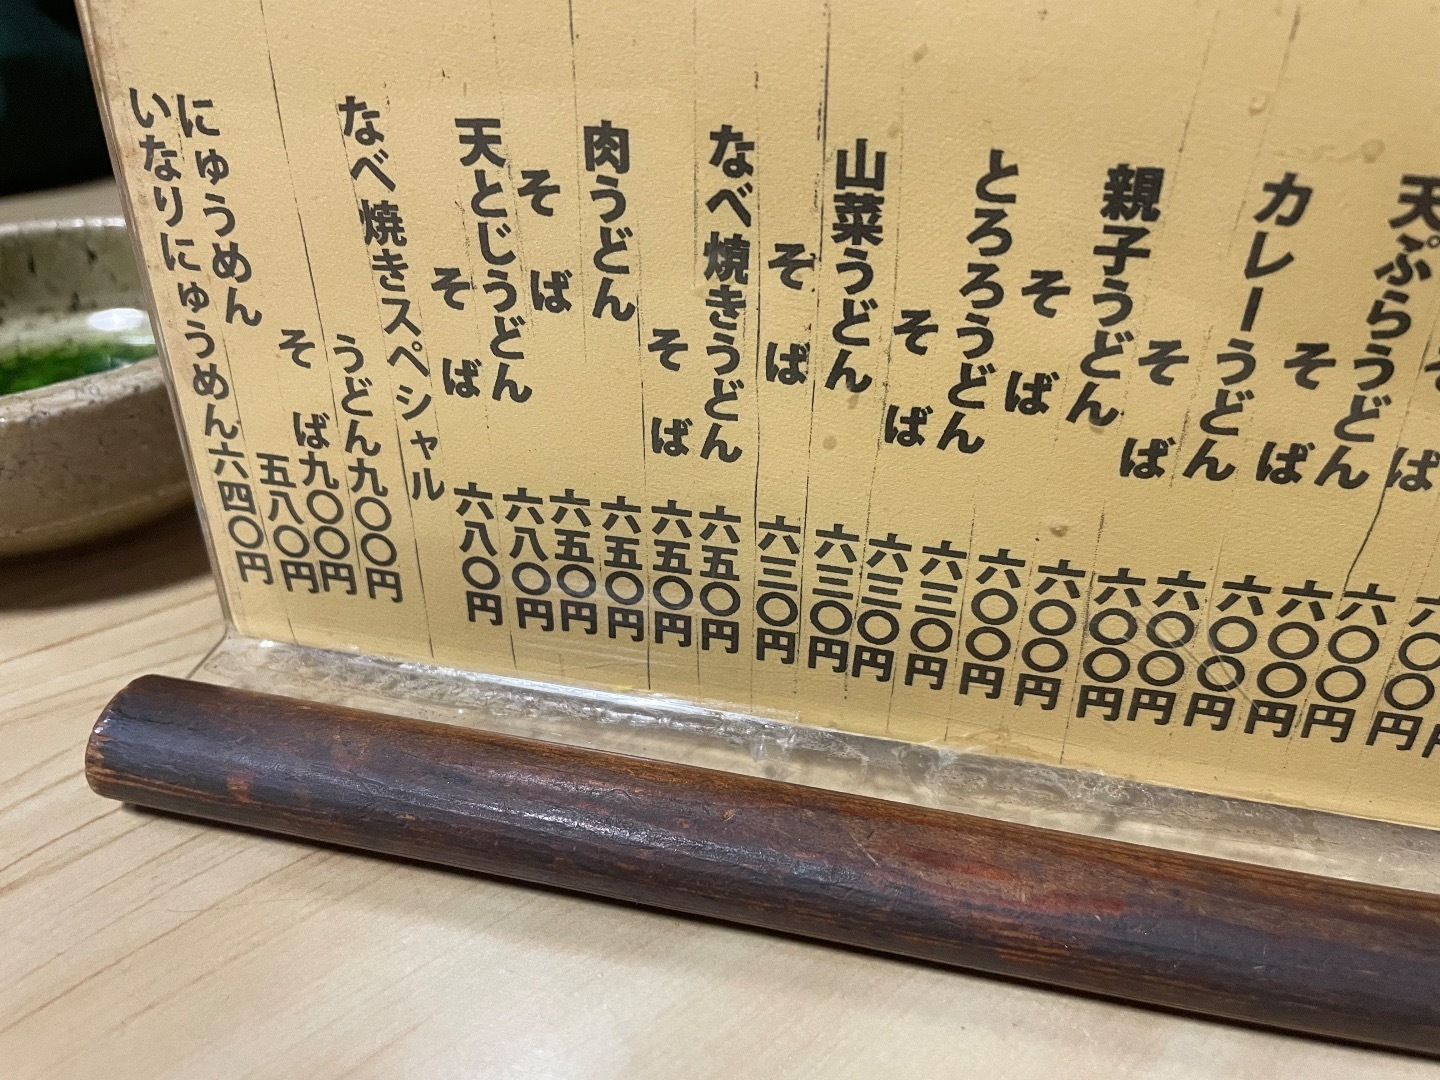 六〇〇円
そば 六〇〇円
天ぷらうどん 六〇〇円
そば 六〇〇円
カレーうどん 六〇〇円
そば 六〇〇円
親子うどん 六〇〇円
そば 六〇〇円
とろろうどん 六三〇円
そば 六三〇円
山菜うどん 六三〇円
そば 六三〇円
なべ焼きうどん 六五〇円
そば 六五〇円
肉うどん 六五〇円
そば 六五〇円
天とじうどん 六八〇円
そば 六八〇円
なべ焼きスペシャル
うどん 九〇〇円
そば 九〇〇円
にゅうめん 五八〇円
いなりにゅうめん 六四〇円